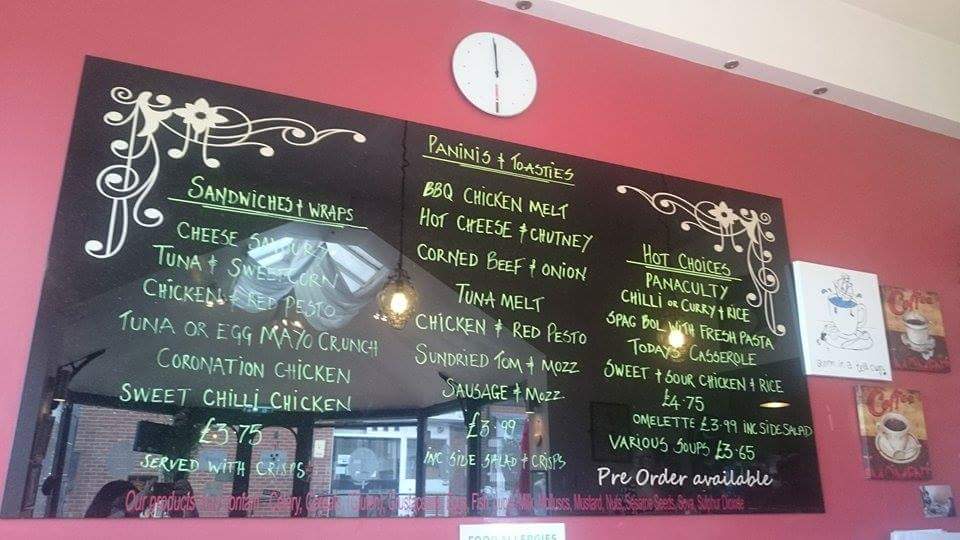 SANDWICHES & WRAPS
CHEESE SAVOURY
TUNA & SWEETCORN
CHICKEN & RED PESTO
TUNA OR EGG MAYO CRUNCH
CORONATION CHICKEN
SWEET CHILLI CHICKEN
£3.75
SERVED WITH CRISPS
PANINIS & TOASTIES
BBQ CHICKEN MELT
HOT CHEESE & CHUTNEY
CORNED BEEF & ONION
TUNA MELT
CHICKEN & RED PESTO
SUNDRIED TOM & MOZZ
SAUSAGE & MOZZ
£3.99
INC SIDE SALAD & CRISPS
HOT CHOICES
PANACULTY
CHILLI OR CURRY & RICE
SPAG BOL WITH FRESH PASTA
TODAYS CASSEROLE
SWEET & SOUR CHICKEN & RICE
£4.75
OMELETTE £3.99 INC SIDE SALAD
VARIOUS SOUPS £3.65
Pre Order available
Our products may contain Celery, Fish, Milk, Molluscs, Mustard, Nuts, Sesame Seeds, Soya, Sulphur Dioxide
FOOD ALLERGIES
storm in a tea cup
Coffee
Coffee
MOMENT